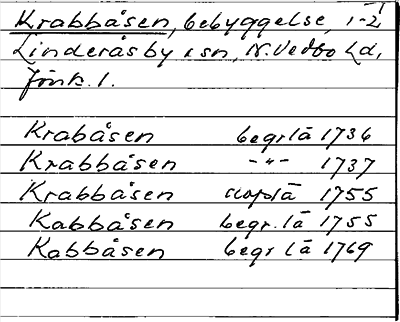 Krabbåsen, bebyggelse, i
Linderås by o sn, N. Vedbo hd,
Jönk. l.
Krabåsen begr lä 1736
Krabbåsen -"- 1737
Krabbåsen dopslä 1755
Kabbåsen begr. lä 1755
Kabbåsen begr lä 1769